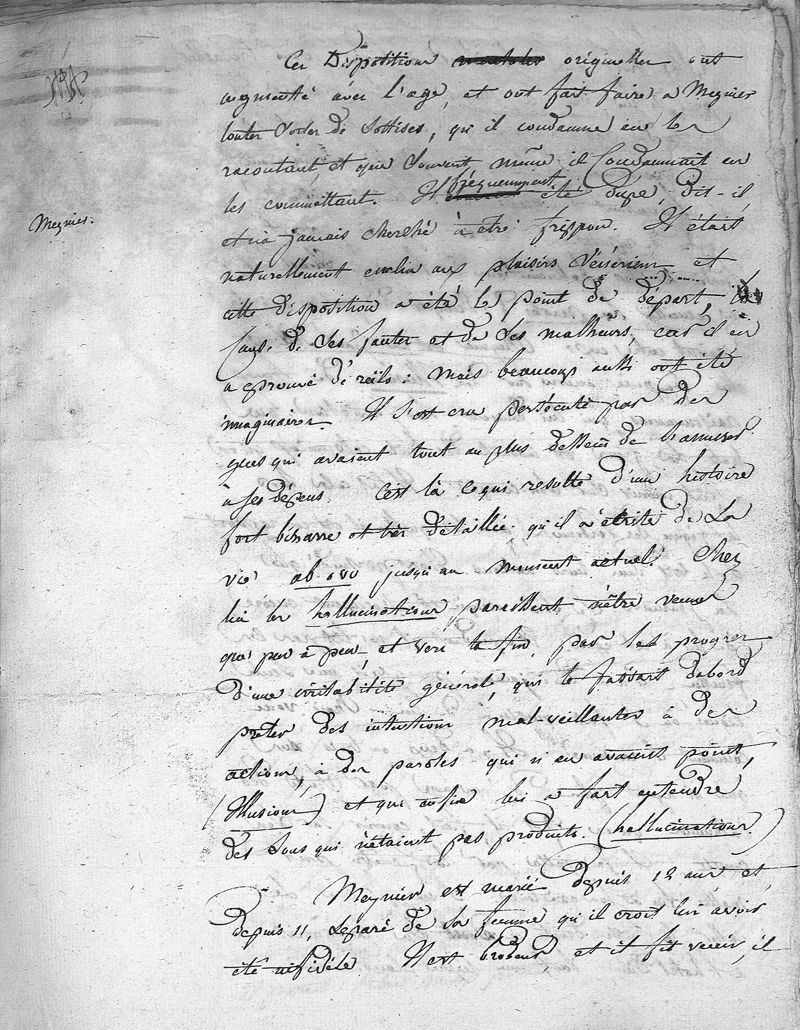 Ces Dispositions originelles ont
augmenté avec l'age, et ont fait faire a Meynier
toutes sortes de sottises, qu'il condamne en les
racontant et que souvent même il Condamnait en
les commettant. Il fréquemment été dupe, dit-il,
Meynier.
et n'a jamais cherché à être frippon. Il était
naturellement enclin aux plaisirs Vénériens et
cette disposition a été le point de départ, la
Cause de ses fautes et de ses malheurs, car il en
a éprouvé de réels : mais beaucoup aussi ont été
imaginaires. Il s'est cru persécuté par des
gens qui avaient tout au plus dessein de s'amuser
à ses dépens. C'est là ce qui resulte d'une histoire
fort bizarre et très détaillée qu'il a écrite de sa
vie ab ovo jusqu'au moment actuel. Chez
lui les hallucinations paraissent n'être venues
que peu à peu, et vers la fin, par les progrès
d'une irritabilité générale, qui le faisait dabord
prêter des intentions mal-veillantes à des
actions, à des paroles qui n'en avaient point,
(Illusions) et qui enfin lui a fait entendre
des sons qui n'étaient pas produits. (hallucinations.)
Meynier est marié depuis 12 ans, et
depuis 11, séparé de sa femme qu'il croit lui avoir
été infidèle. Il est brodeur, et il fit venir, il